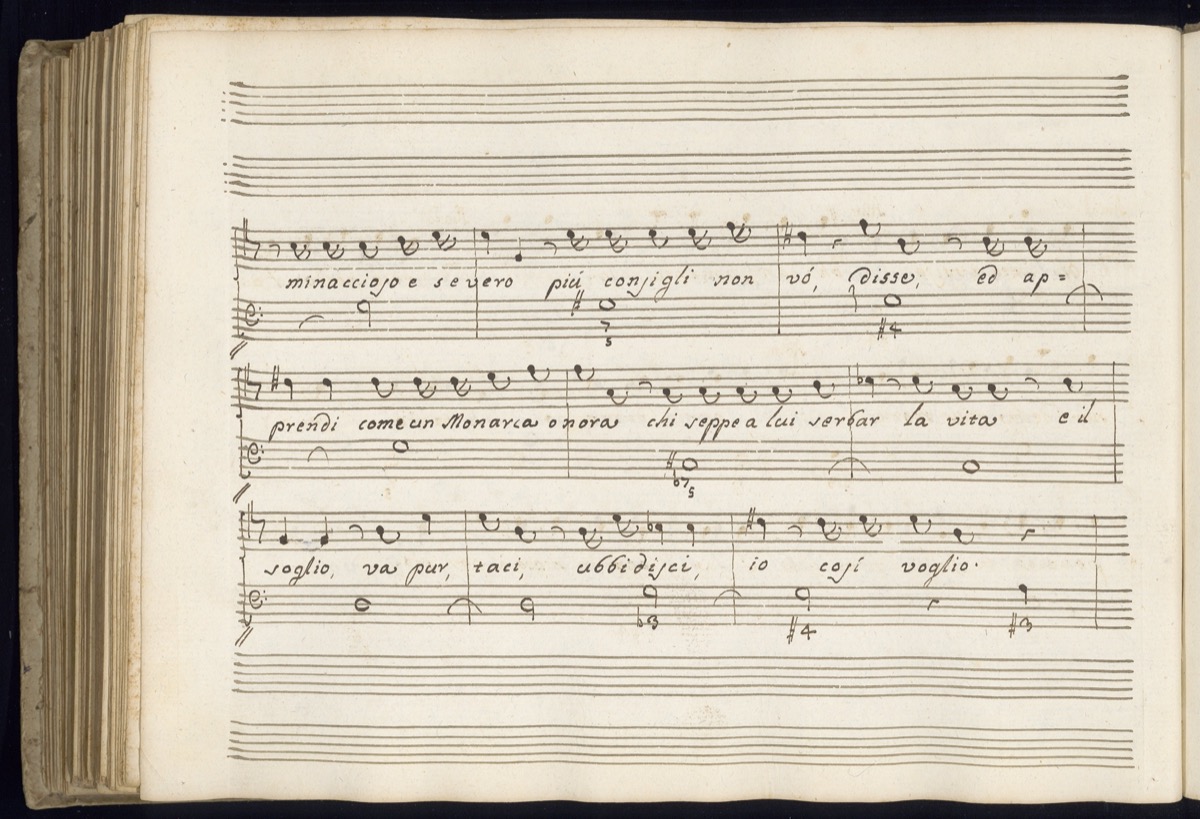 minaccioso e severo più consigli non vò, disse, ed ap=
♯ 7 5 ♯4
prendi come un Monarca onora chi seppe a lui serbar la vita e il
♭7 5
soglio, va pur, taci, ubbidisci, io così voglio.
♭3 ♯4 ♯3